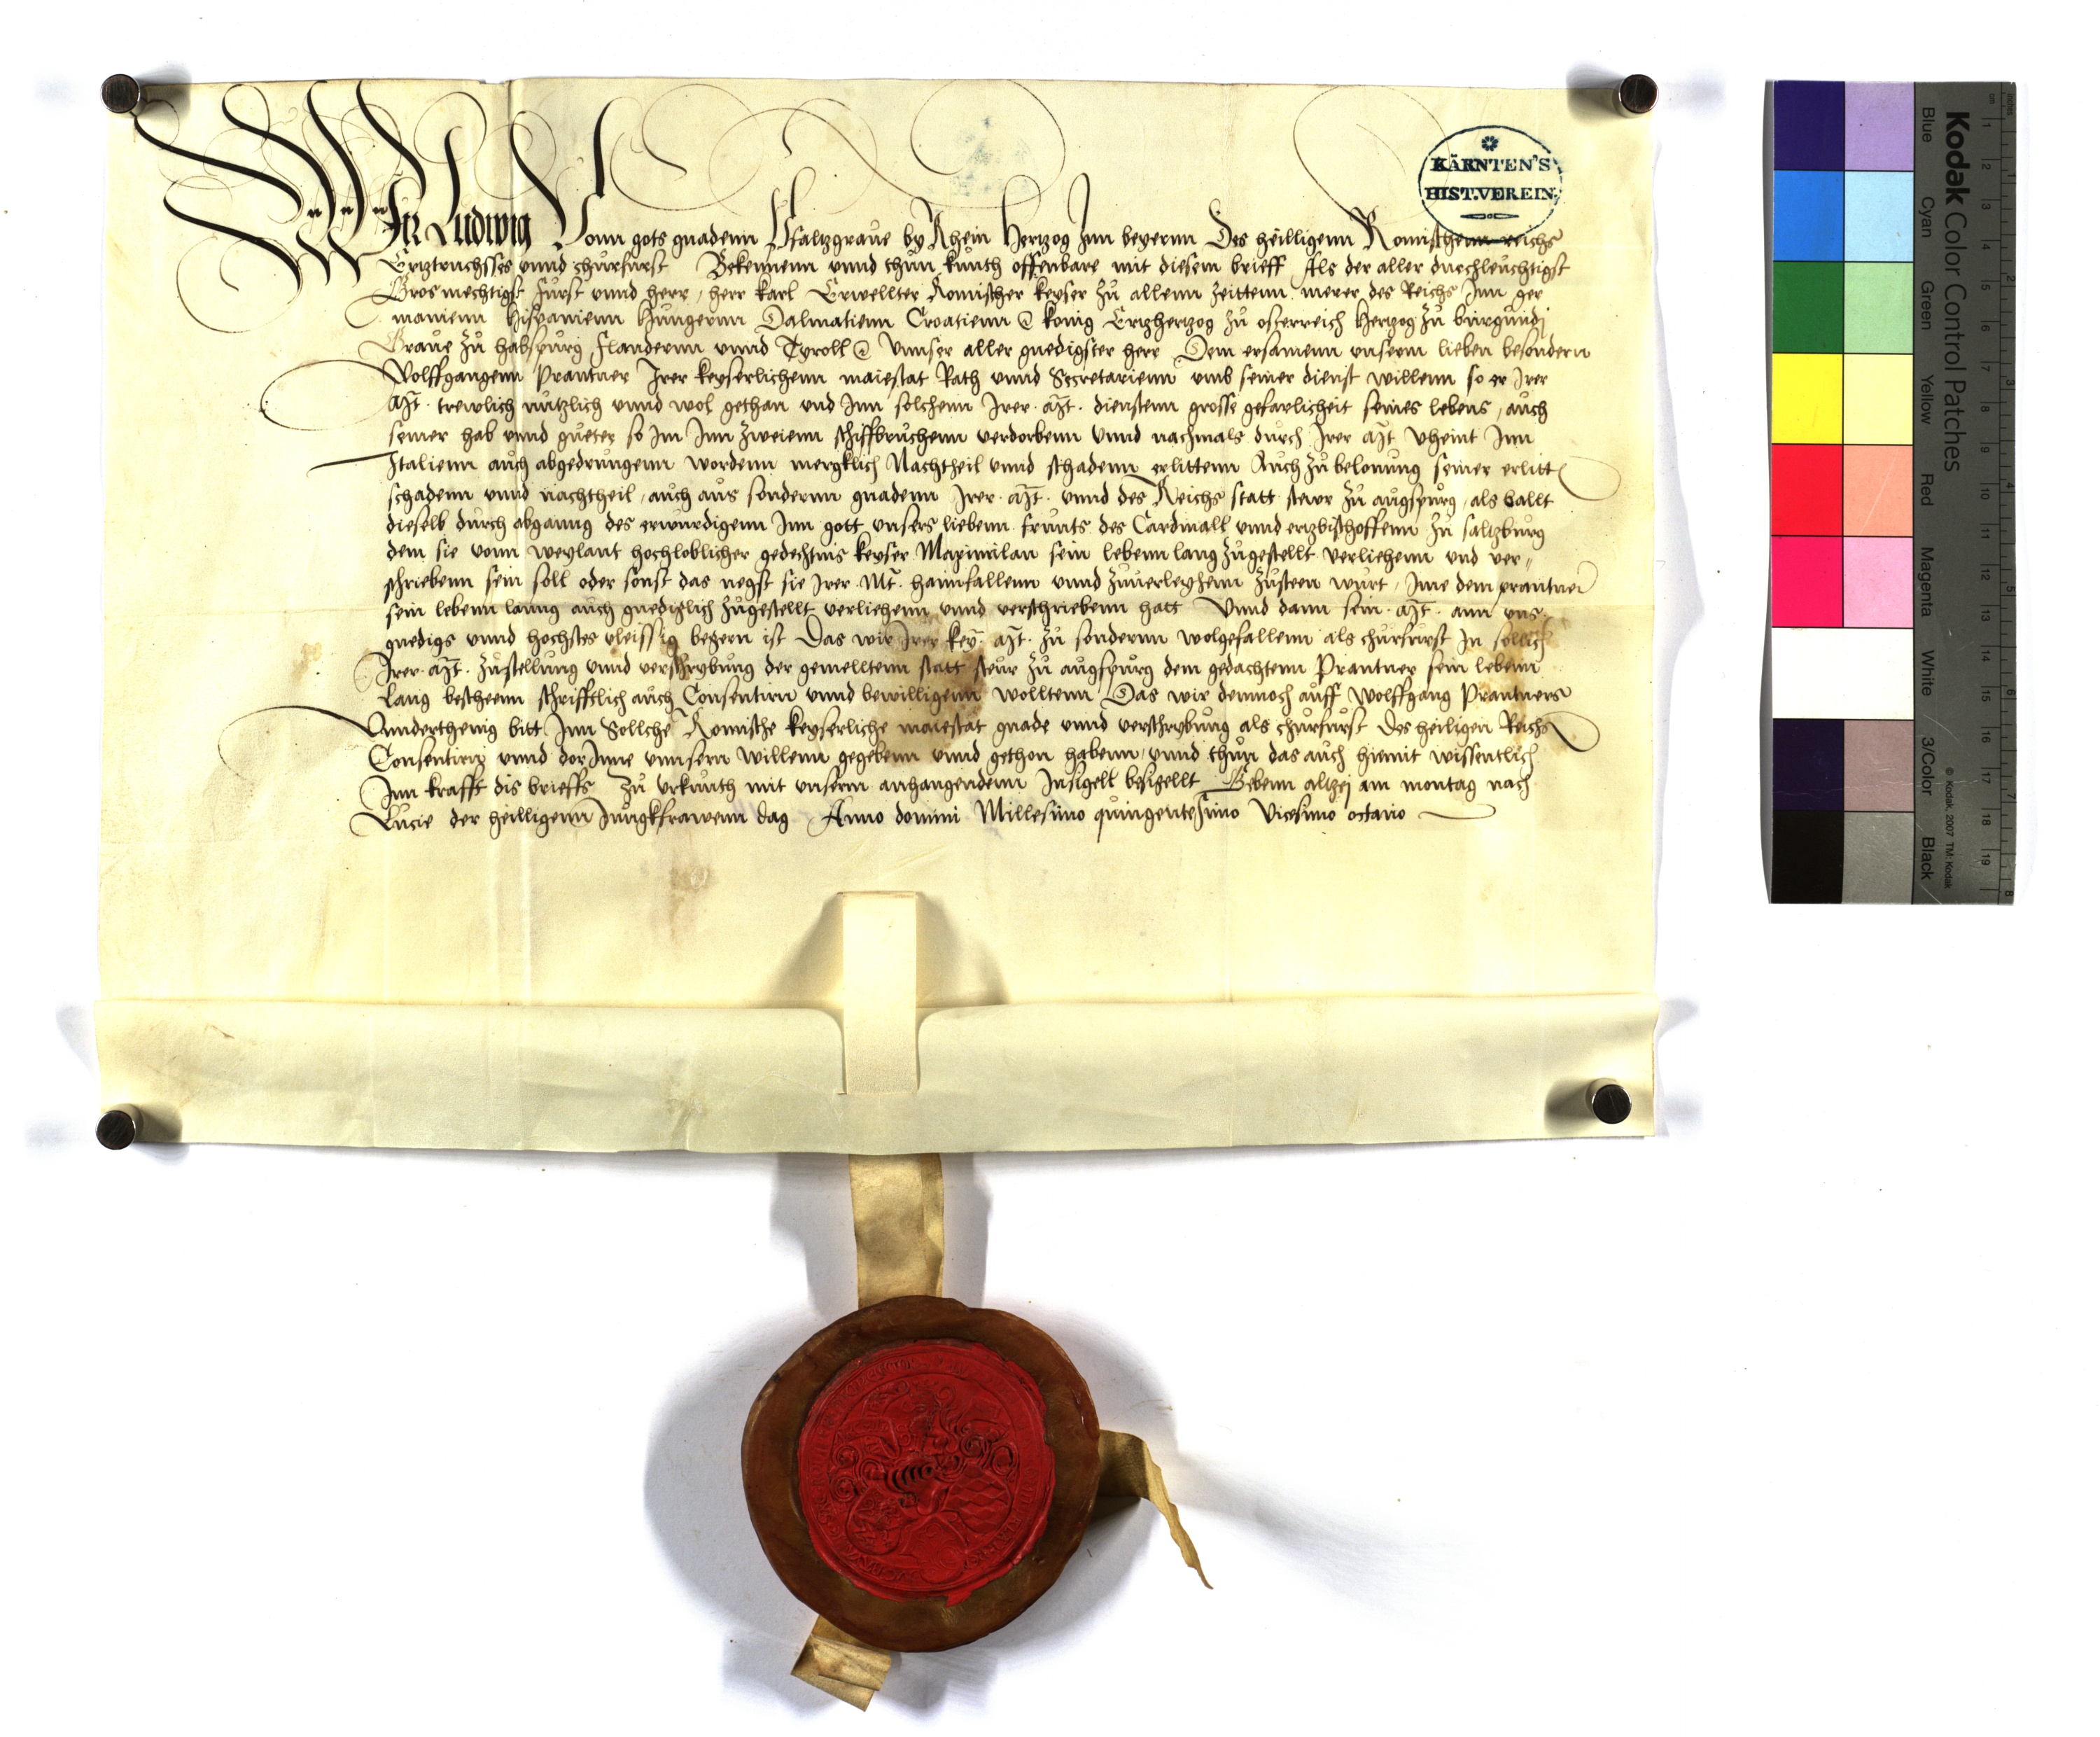 KÄRNTEN'S
HIST.VEREIN
Wir Ludwig Vonn gots gnadenn Pfaltzgraue by Rhein Hertzog Inn beyernn Des heilligenn Romischenn reichs
Ertztruchsses vnnd churfurst Bekennenn vnnd thun kunth offenbare mit diesem brieff Als der aller durchleuchtigst
Gros mechtigst furst vnnd herr, herr Karl Erwellter Romischer keyser zu allenn zeittenn merer des Reichs Inn ger
manienn Hispanienn Hungernn Dalmatienn Croatienn &c konig Ertzhertzog zu osterreich Hertzog zu burgundj
Graue zu habspurg flandernn vnnd Tyroll &c Vnnser aller gnedigster herr Dem ersamenn vnserm lieben besondern
Wolffgangenn Prantner Irer keyserlichenn maiestat Rath vnnd Secretarienn vmb seiner dienst willenn so er Irer
Mt. trewlich nutzlich vnnd wol gethan vnd Inn solchenn Irer. Mt. dienstenn grosse gefarlicheit seines lebens, auch
seiner hab vnnd gueter so Im Inn zweienn schiffbruchenn verdorbenn vnnd nachmals durch Irer Mt vheint Inn
Italienn auch abgedrungenn wordenn mergklich Nachtheil vnnd schadenn erlittenn Auch zu belonung seiner erlitt
schadenn vnnd nachtheil, auch aus sondernn gnadenn Irer. Mt. vnnd des Reichs statt stewr zu augspurg, als ballt
dieselb durch abganng des erwurdigenn Inn gott vnsers liebenn frunts des Cardinall vnnd ertzbischoffenn zu saltzburg
dem sie vonn weylant hochloblicher gedechtnis keyser Maximilan sein lebenn lang zugestellt verliehenn vnd ver„
schriebenn sein soll oder sonst das negst sie Irer Mt. haimfallenn vnnd zuuerleyhenn zusteen wurt, Ime dem prantner
sein lebenn lanng auch gnediglich zugestellt verliehenn vnnd verschriebenn hatt Vnnd dann sein. Mt. ann vns
gnedigs vnnd hochstes vleissig begern ist Das wir Irer key. Mt. zu sondernn wolgefallenn als churfurst In sollich
Irer. Mt. zustellung vnnd verschrybung der gemelltenn statt steur zu augspurg dem gedachtenn Prantner sein lebenn
lang bescheenn schrifftlich auch Consentirn vnnd bewilligenn wolltenn Das wir demnoch auff Wolffgang Prantners
Vnderthenig bitt Inn Sollche Romische keyserliche maiestat gnade vnnd verschrybung als churfurst Des heiligen Reichs
Consentirn vnnd dorInne vnnsern willenn gegebenn vnnd gethon habenn, vnnd thun das auch hiemit wissentlich
Inn krafft dis brieffs Zu vrkunth mit vnserm anhangendenn Insigell besigellt Gebenn altzej am montag nach
Lucie der heilligenn Jungkfrawenn dag Anno domini Millesimo quingentesimo Vicesimo octauo
Kodak Color Control Patches
Blue Cyan Green Yellow Red Magenta White 3/Color Black
© Kodak, 2007 TM: Kodak